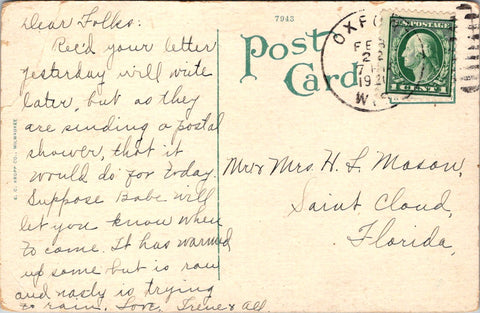 Dear Folks:
Rec'd your letter
yesterday will write
later, but as they
are sending a postal
shower, that it
would do for today.
Suppose Babe will
let you know when
to come. It has warmed
up some but is raw
and nasty is trying
to rain. Love. Irene & All.
E. C. KROPP CO., MILWAUKEE
7943
Post
Card
OXFO
FEB
2
7
19
WIS
U.S. POSTAGE
1 CENT 1
Mr & Mrs. H. L. Mason,
Saint Cloud,
Florida,